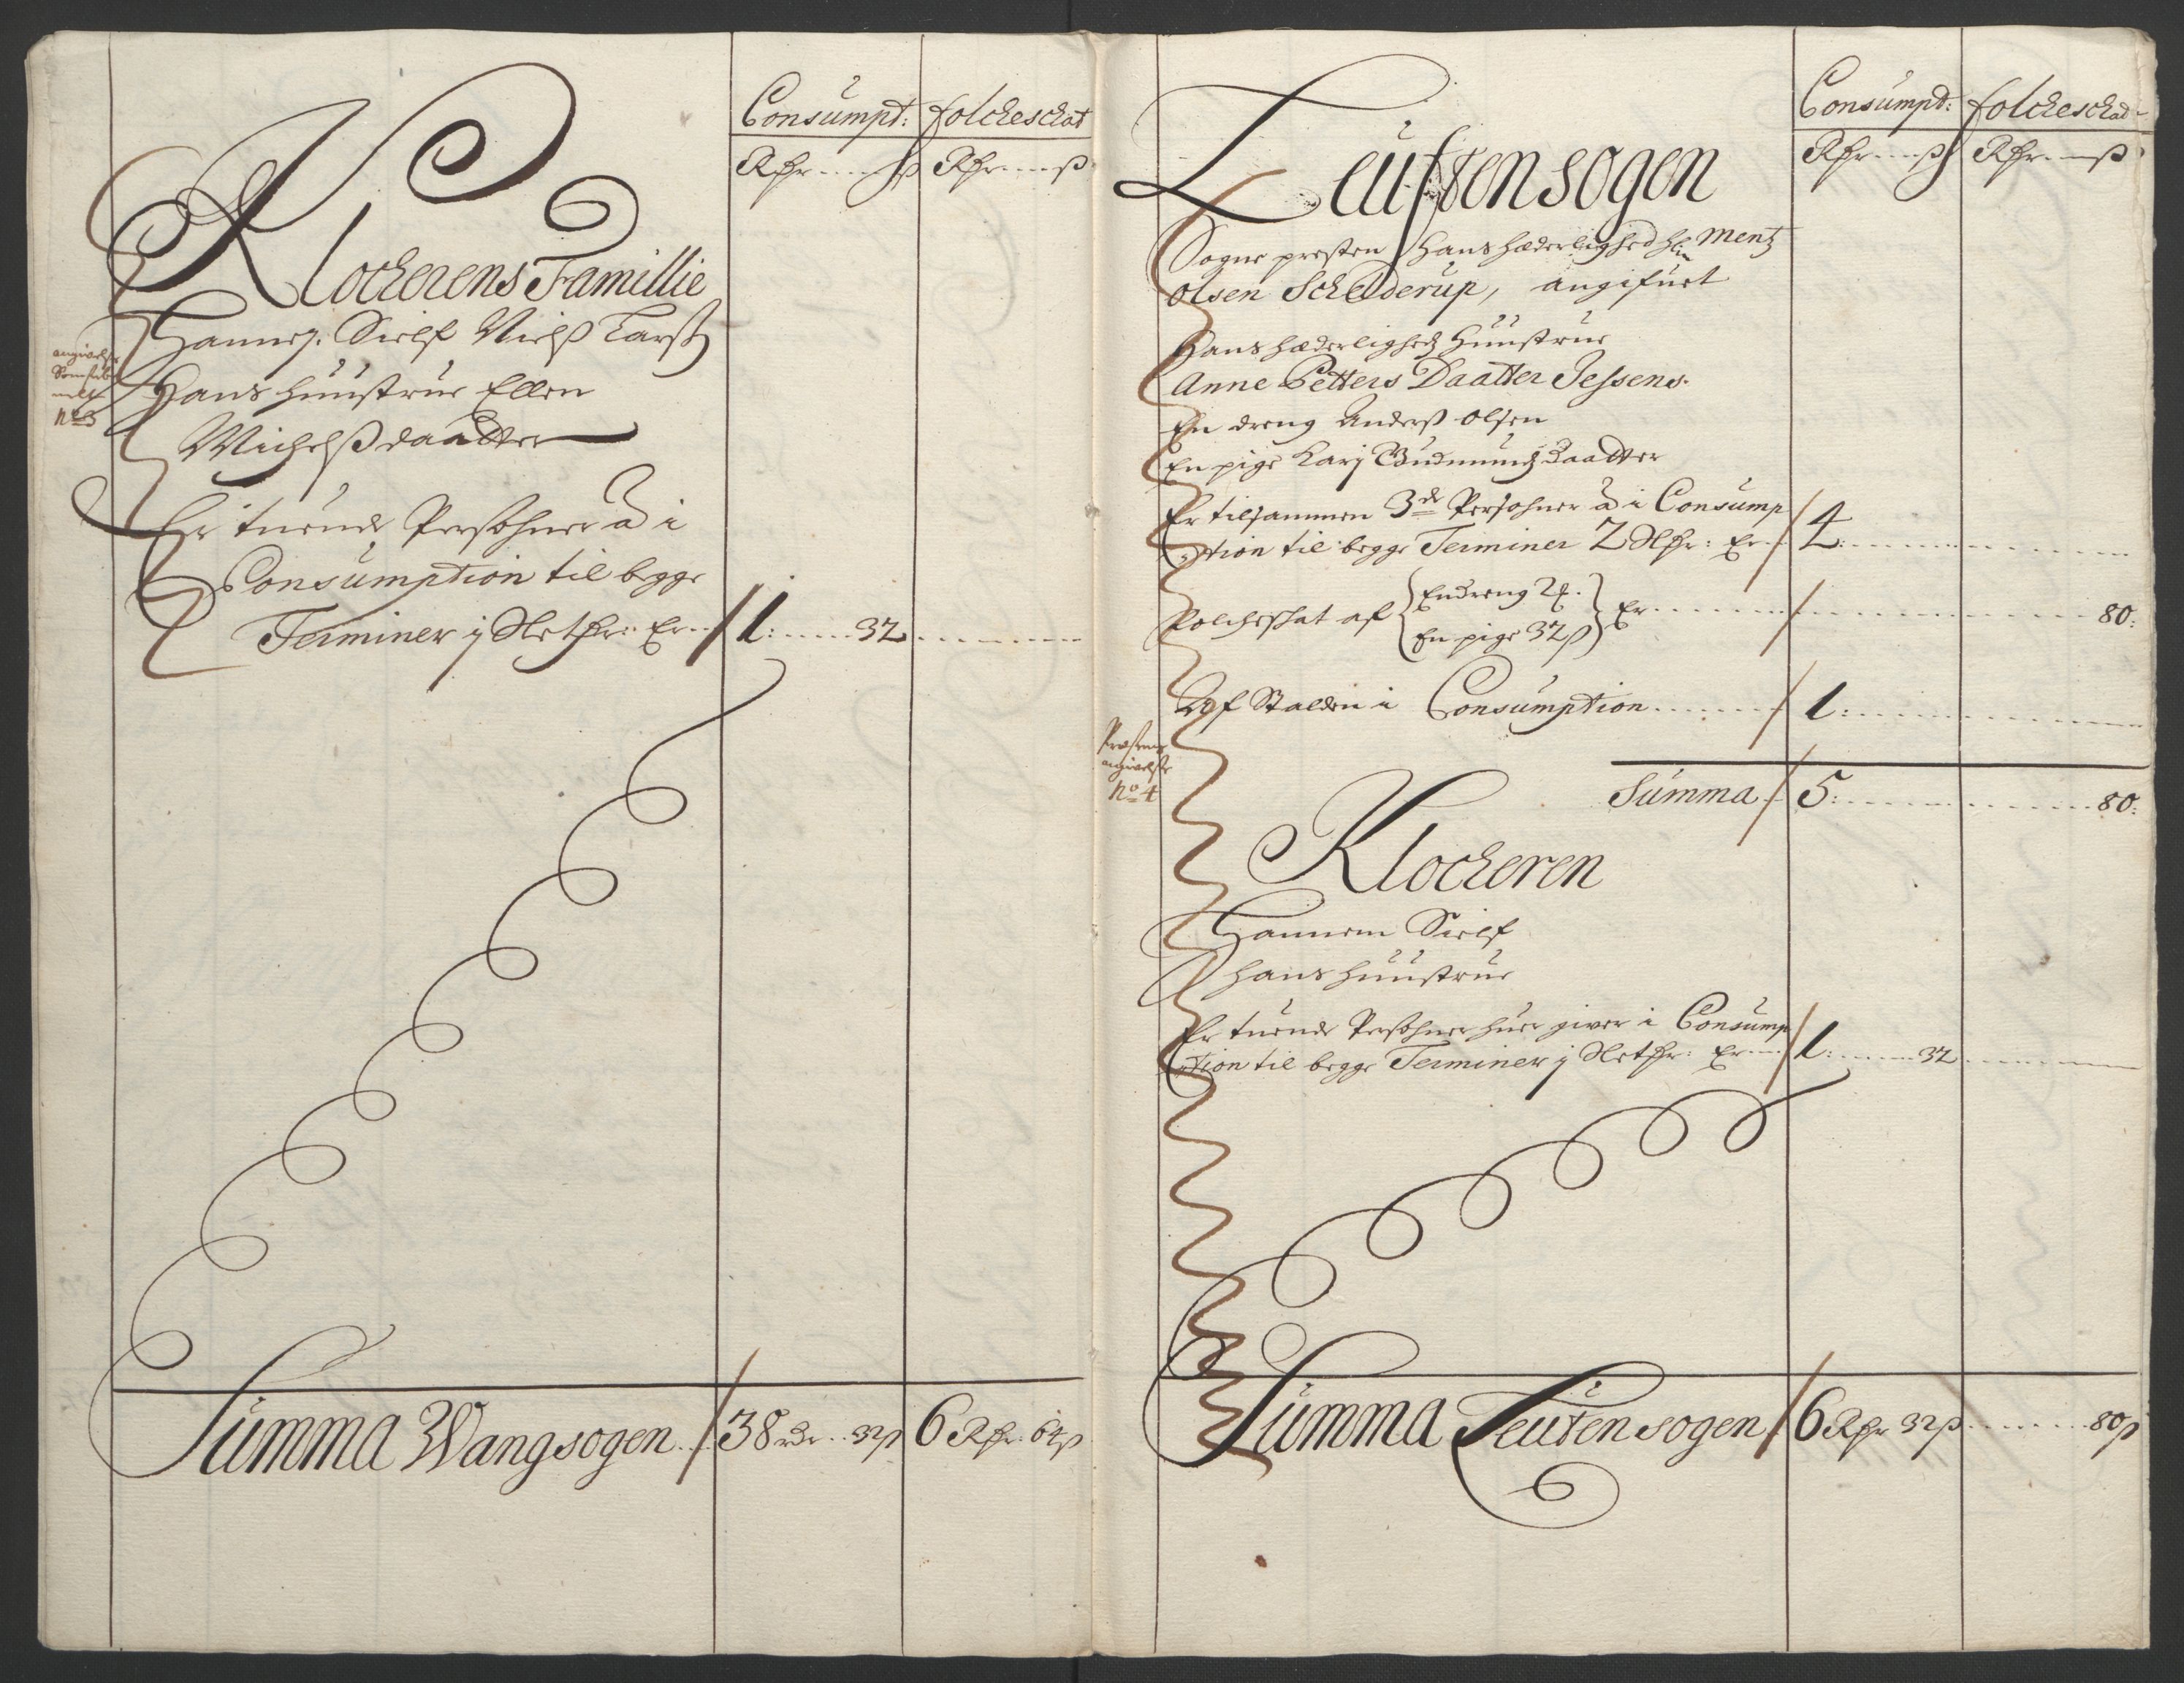 Consumpt: folckeschat
Rdr ß Rdr ß
Klockerens Famillie
Hannej. Sielf Niels Larss
Hans huustrue Ellen
Michelsdaatter
No 3
Er tuende Persohner à i
Consumption til begge
Terminer j Slet dr: Er 1: 32
Summa Wangsogen 38 rdr 32ß 6 Rdr: 64ß
Consumpt: folckeschad
Rdr ß Rdr ß
Leutensogen
Sogne presten Hans hæderlighed hl: Mentz
Olsen Schelderup, angifuet
Hans hæderligheds Huustrue
Anne Petters Daatter Jessens.
En dreng Anders Olsen
En pige Karj Gudmunds daatter
Er tilsammen 3de Persohner à i Consump
tion til begge Terminer 2 Rdr: Er 4
Folcheskat af En dreng
En pige 32ß Er 80:
Af Stalden i Consumption 1:
Prestens
angivelse
No 4
Summa 5: 80:
Klockeren
Hannem Sielf
hans huustrue
Er tuende Persohner huer giver i Consump
tion til begge Terminer j Slet dr: Er 1: 32
Summa Leuten sogen 6 Rdr 32ß 80ß